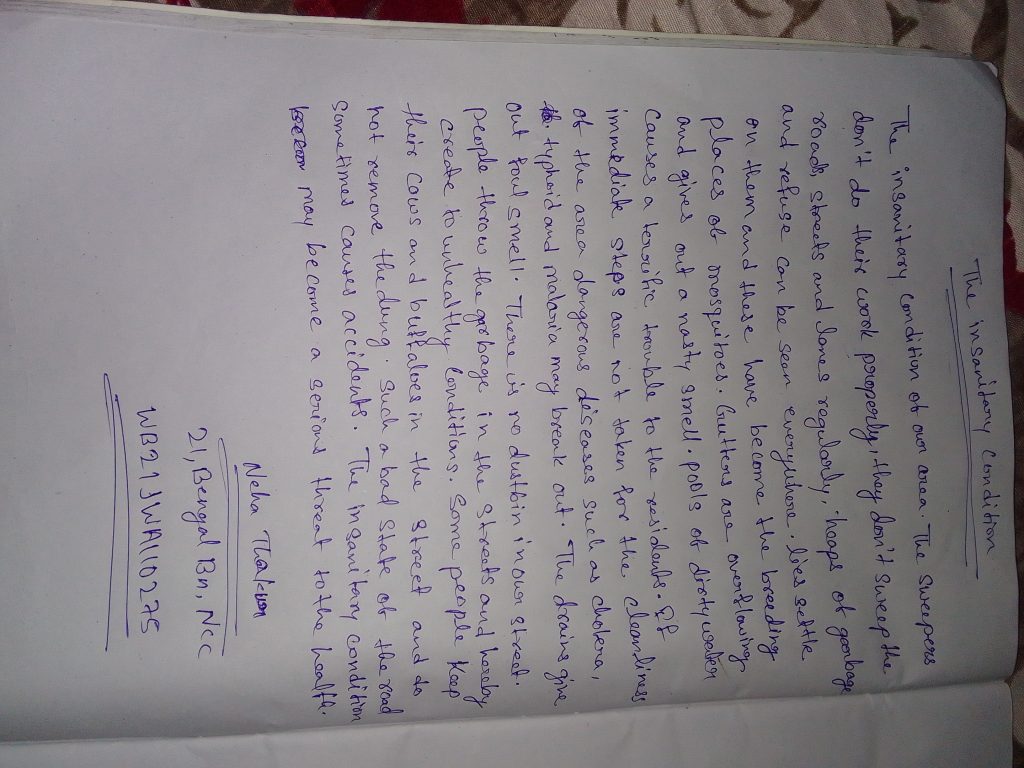 The insanitary condition
The insanitary condition of our area. The sweepers
don't do their work properly, they don't sweep the
roads, streets and lanes regularly, heaps of garbage
and refuse can be seen everywhere. lies settle
on them and these have become the breeding
places of mosquitoes. Gutters are overflowing
and gives out a nasty smell. pools of dirty water
causes a terrific trouble to the residents. If
immediate steps are not taken for the cleanliness
of the area dangerous diseases such as cholera,
typhoid and malaria may break out. The drains give
out foul smell. There is no dustbin in our street.
people throw the grobage in the streets and hereby
create to unhealthy conditions. Some people keep
their cows and buffaloes in the street and to
not remove the dung. Such a bad state of the road
sometimes causes accidents. The insanitary condition
may become a serious threat to the health.
Neha Thakur
21, Bengal Bn, Ncc
WB21JWA110275